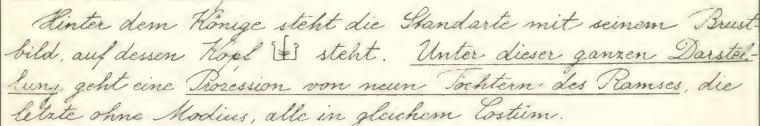 Hinter dem Könige steht die Standarte mit seinem Brust-
bild, auf dessen Kopf [] steht. Unter dieser ganzen Darstel-
lung geht eine Prozession von neun Töchtern des Ramses, die
letzte ohne Modius, alle in gleichem Costüm.